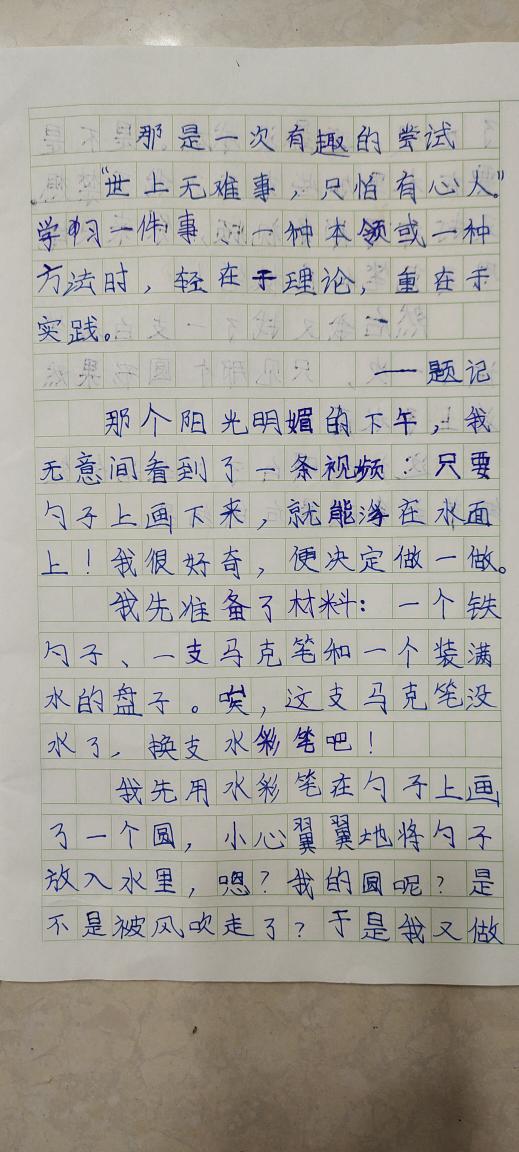 那是一次有趣的尝试
“世上无难事，只怕有心人。”
学习一件事、一种本领或一种
方法时，轻在于理论，重在于
实践。
——题记
那个阳光明媚的下午，我
无意间看到了一条视频：只要
勺子上画下来，就能浮在水面
上！我很好奇，便决定做一做。
我先准备了材料：一个铁
勺子、一支马克笔和一个装满
水的盘子。唉，这支马克笔没
水了，换支水彩笔吧！
我先用水彩笔在勺子上画
了一个圆，小心翼翼地将勺子
放入水里，嗯？我的圆呢？是
不是被风吹走了？于是我又做